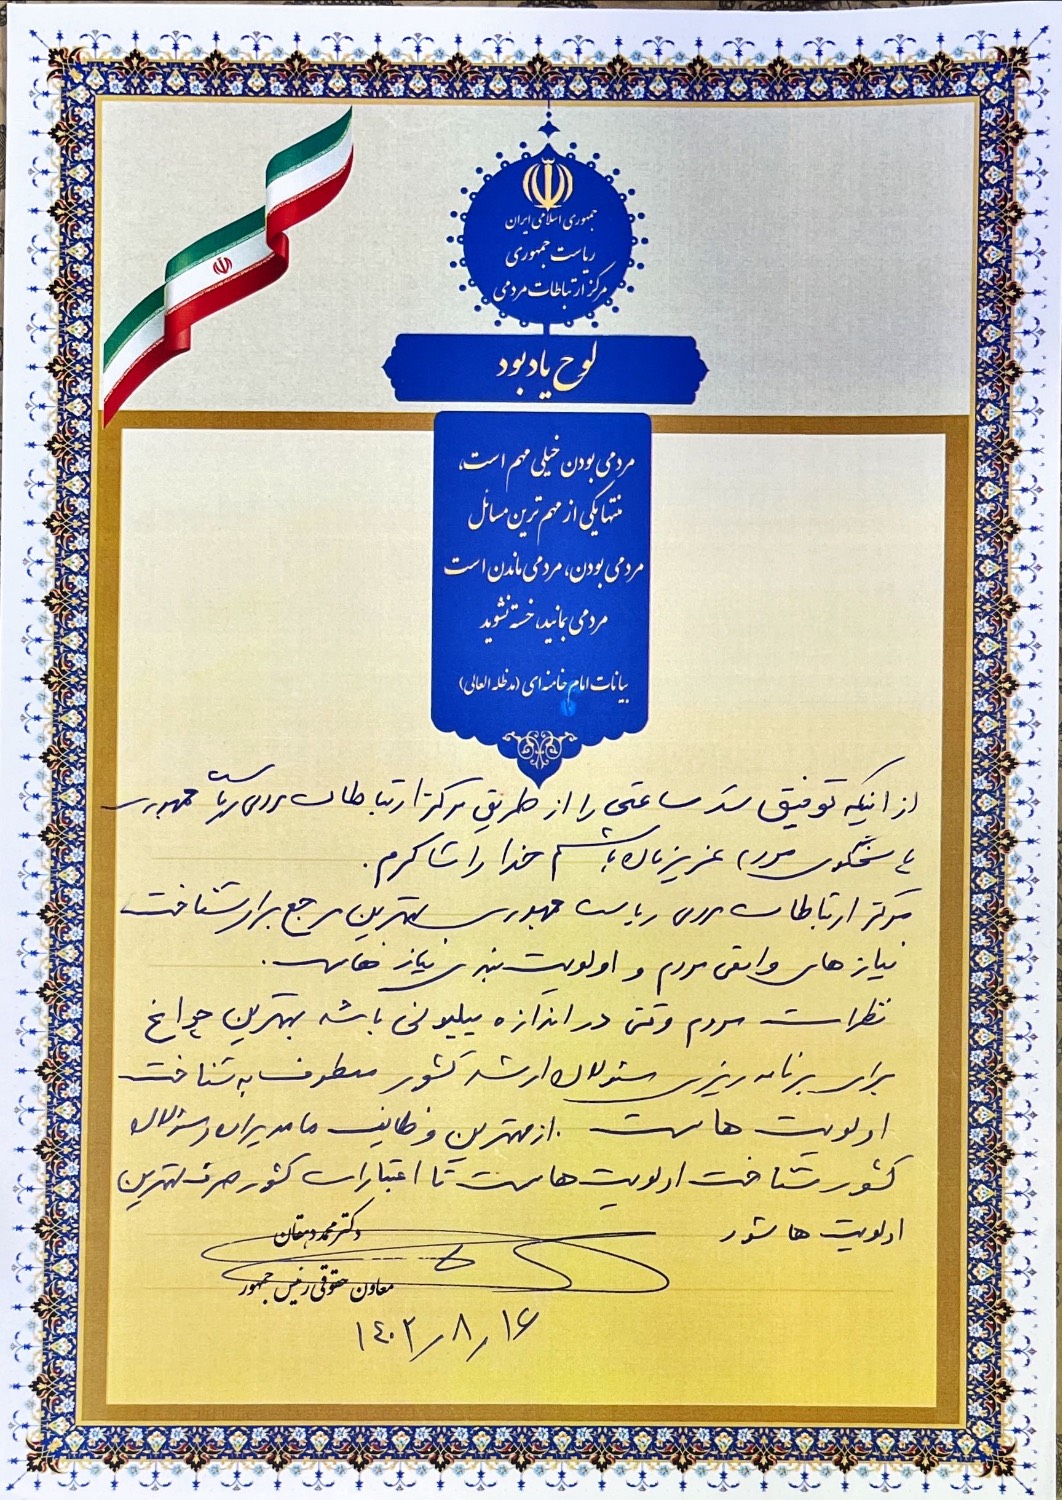 جمهوری اسلامی ایران
ریاست جمهوری
مرکز ارتباطات مردمی
لوح یادبود
مردمی بودن خیلی مهم است،
منتها یکی از مهم ترین مسائل
مردمی بودن، مردمی ماندن است
مردمی بمانید، خسته نشوید
بیانات امام خامنه ای (مدظله العالی)
از اینکه توفیق شد ساعتی را از طریق مرکز ارتباطات مردمی ریاست جمهوری
پاسخگوی مردم عزیزمان باشم خدا را شاکرم.
مرکز ارتباطات مردمی ریاست جمهوری بهترین مرجع برای شناخت
نیازهای واقعی مردم و اولویت بندی نیازهاست.
نظرات مردم وقتی در اندازه میلیونی باشد بهترین چراغ
برای برنامه ریزی مسئولان ارشد کشور معطوف به شناخت
اولویت هاست. از مهترین وظایف ما مدیران و مسئولان
کشور شناخت اولویت هاست تا اعتبارات کشور صرف بهترین
اولویت ها شود
دکتر محمد دهقان
معاون حقوقی رئیس جمهور
۱۴۰۲/۸/۱۶